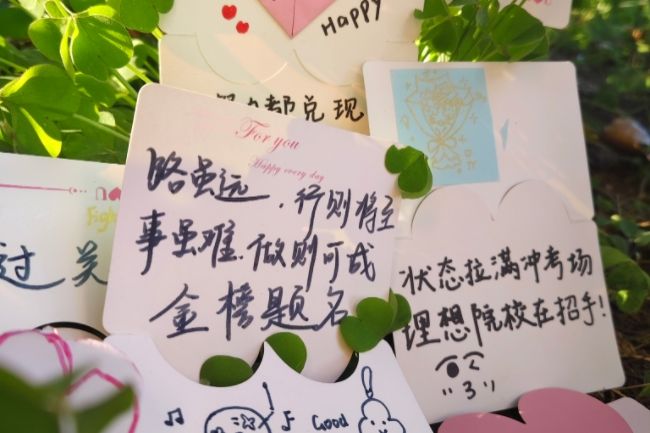 Happy
都兑现
For you
Happy every day
路虽远，行则将至
事虽难，做则可成
金榜题名
Figh
过关
状态拉满冲考场
理想院校在招手！
Good